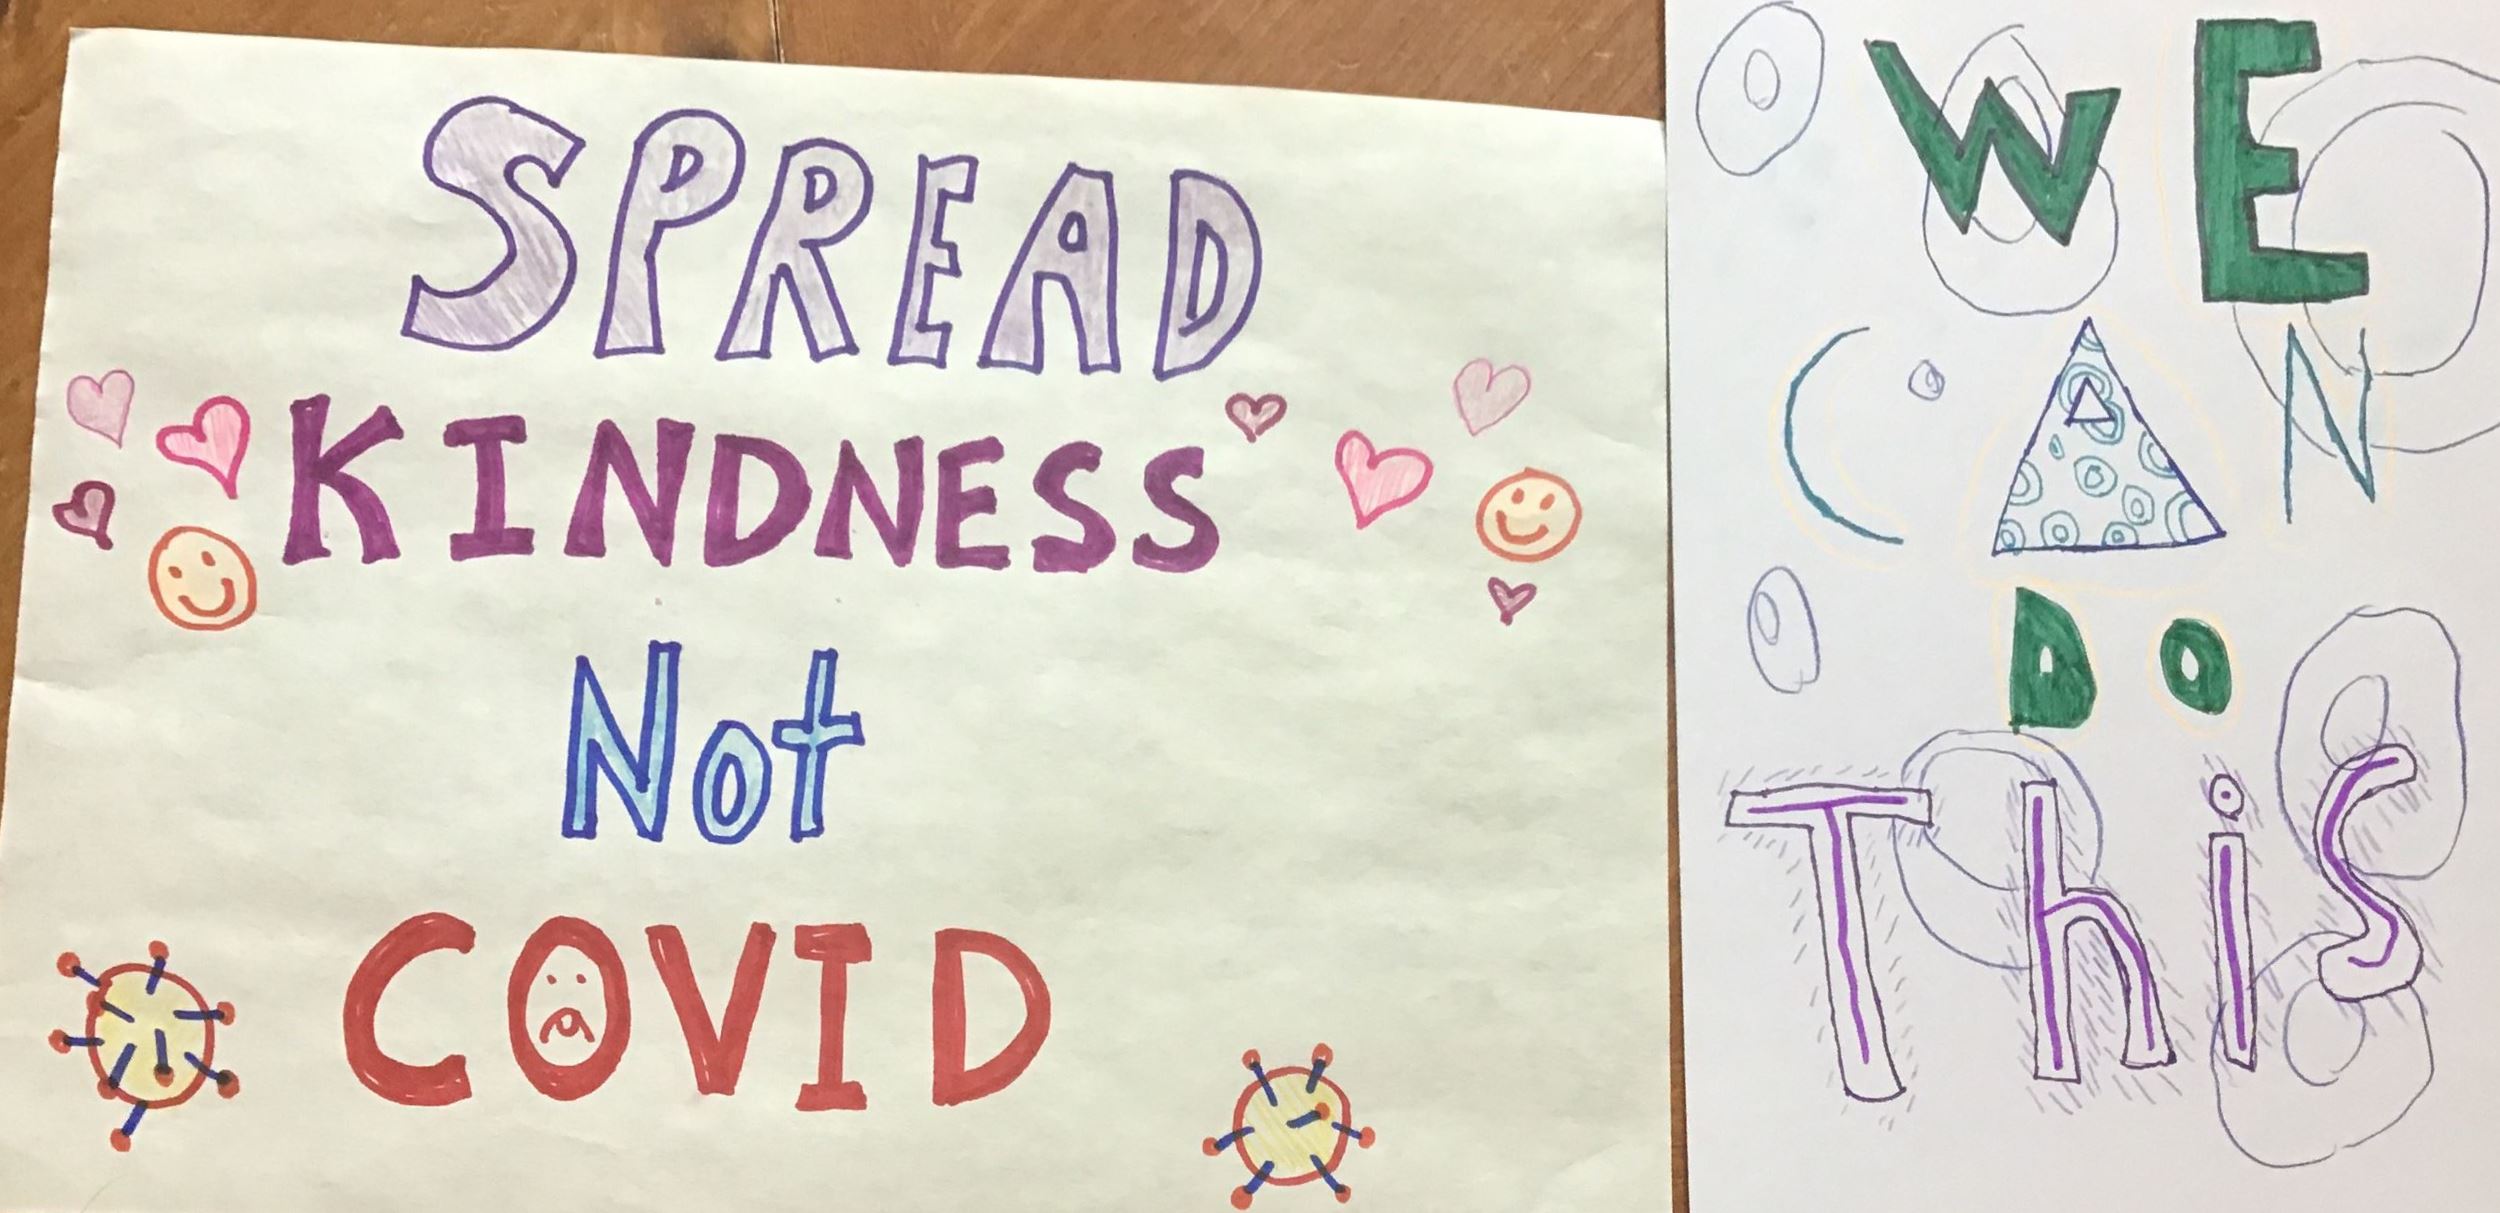 SPREAD
KINDNESS
Not
COVID
WE
CAN
DO
This